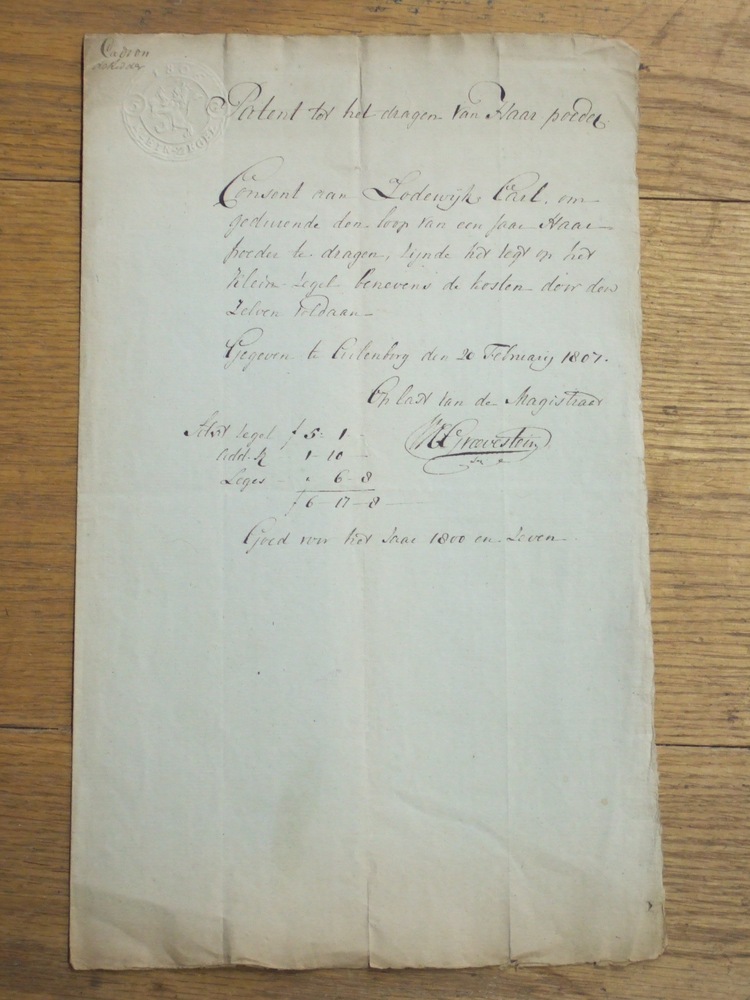 1807
KLEIN ZEGEL
Patent tot het dragen van Haar poeder.
Consent aan Lodewijk Carl. om
gedurende den loop van een jaar Haar
poeder te dragen, zijnde het regt op het
klein Zegel benevens de kosten door den
Zelven voldaan
Gegeven te Culenborg den 20 February 1807.
Op last van de Magistraat
Grovestein
Zegel f 5: 1 -
Add. 1 - 10 -
Leges - " 6 - 8
f 6 - 17 - 8
Goed voor het Jaar 1800 en Zeven